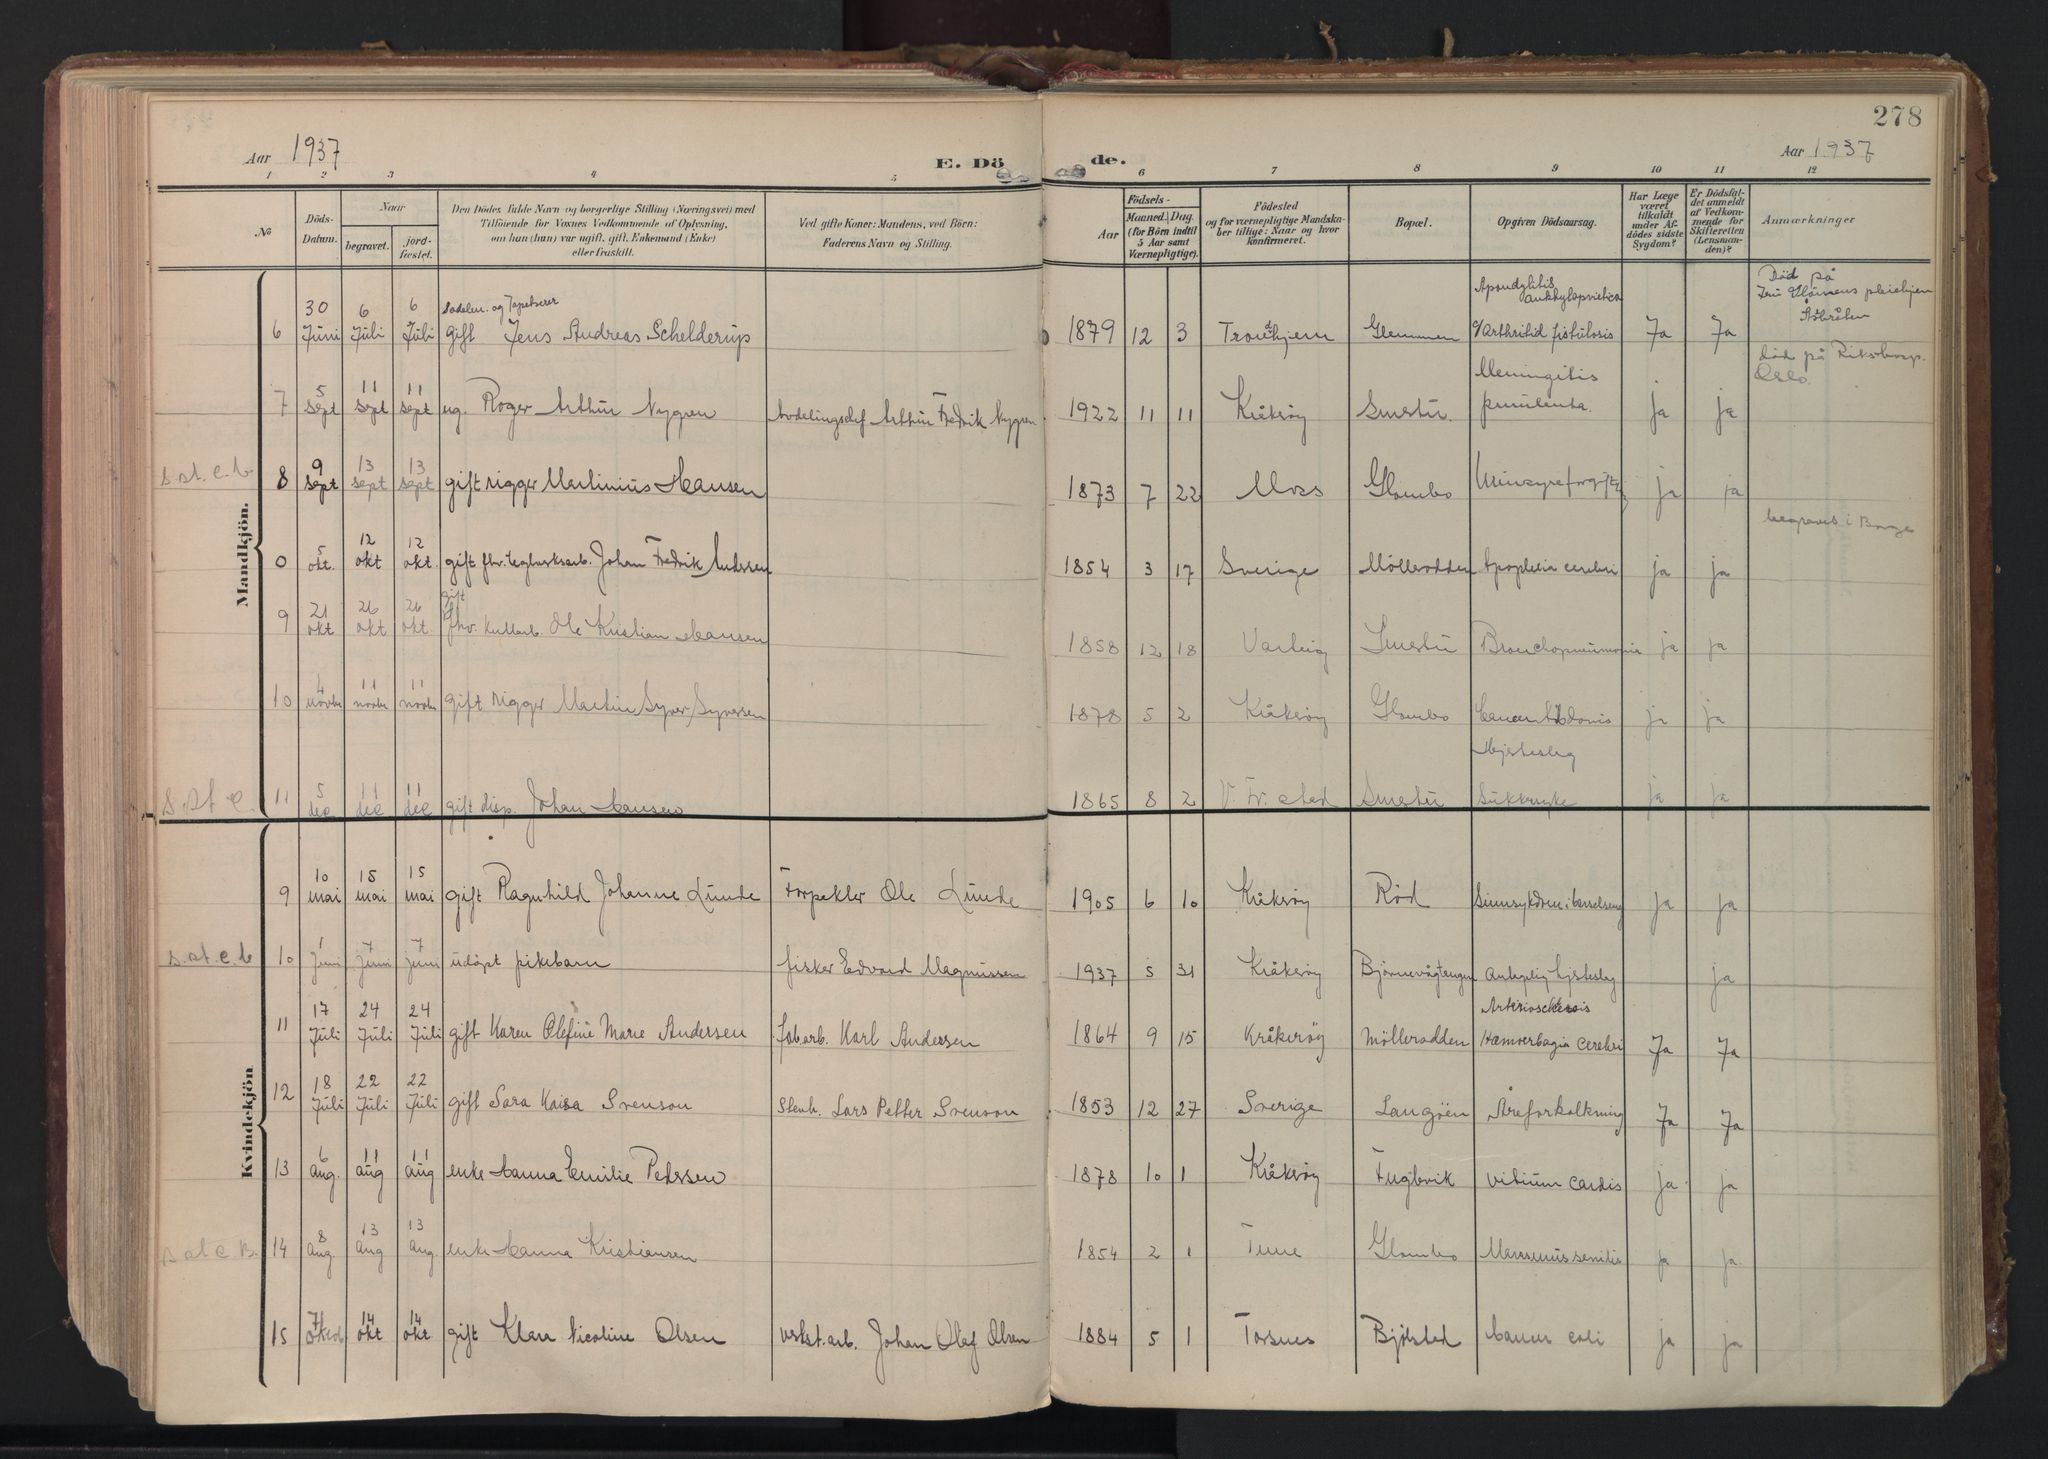 278
Aar 1937
E. Dö
de.
Aar 1937
1 2 3 4 5 6 7 8 9 10 11 12
No
Döds-Datum.
Naar
begravet.
jord-fæstet.
Den Dödes fulde Navn og borgerlige Stilling (Næringsvei) med
Tilföiende for Voxnes Vedkommende af Oplysning,
om han (hun) var ugift, gift, Enkemand (Enke)
eller fraskilt.
Ved gifte Koner: Mandens, ved Börn:
Faderens Navn og Stilling.
Födsels-
Aar
Maaned. Dag.
(for Börn indtil
5 Aar samt
Værnepligtige).
Födested
og for værnepligtige Mandska-
ber tillige: Naar og hvor
konfirmeret.
Bopæl.
Opgiven Dödsaarsag.
Har Læge
været
tilkaldt
under Af-
dödes sidste
Sygdom?
Er Dödsfal-
det anmeldt
af Vedkom-
mende for
Skifteretten
(Lensman-
den)?
Anmærkninger
Mandkjön.
6 30 Juni 6 Juli 6 Juli Sadelm. og Tapetserer gift Jens Andreas Schelderup 1879 12 3 Trondhjem Glemmen Ja Ja Død på
7 5 sept 11 sept 11 sept ug. Roger Arthur Nygren Avdelingschef Arthur Fredrik Nygren 1922 11 11 Kråkerøy Smertu. Meningitis purulenta. ja ja død på Rikshosp. Oslo.
s.st.e.b 8 9 sept 13 sept 13 sept gift rigger Martinius Hansen 1873 7 22 Moss Glombo ja ja
0 5 okt. 12 okt 12 okt. gift fhv. Johan Fredrik 1854 3 17 Sverige Mölleradden Apoplexia cerebri ja ja begravet i Borge
9 21 okt 26 okt 26 okt. gift fhv. Ole Kristian Hansen 1858 12 18 Varteig Smertu Bronchopneumonia ja ja
10 4 novbr 11 novbr 11 novbr gift rigger Martin Syver Syversen 1878 5 2 Kråkerøy Glombo ja ja
s.st.e. 11 5 dec 11 dec 11 dec gift disp. Johan Hansen 1865 8 2 V. Fr.stad Smertu Hjerteslag Sukkersyke ja ja
Kvindekjön
9 10 mai 15 mai 15 mai gift Ragnhild Johanne Lunde Ole Lunde 1905 6 10 Kråkerøy Rød ja ja
s.st.e.b 10 1 juni 7 juni 7 juni udöpt pikebarn fisker Edvard Magnussen 1937 5 31 Kråkerøy Antagelig hjerteslag ja
11 17 Juli 24 Juli 24 Juli gift Karen Olefine Marie Andersen fab.arb. Karl Andersen 1864 9 15 Kråkeröy Mölleradden Ja Ja
12 18 Juli 22 Juli 22 Juli gift Sara Kaisa Svenson Stenh. Lars Petter Svenson 1853 12 27 Sverige Langöen Åreforkalkning Ja Ja
13 6 aug. 11 aug 11 aug enke Hanna Emilie Pedersen 1878 10 1 Kråkerøy Fuglevik vitium cordis ja ja
s.st.e.b. 14 8 aug. 13 aug 13 aug. enke Hanna Kristiansen 1854 2 1 Tune Glombo Marasmus senilis ja ja
15 7 oktob 14 okt 14 okt gift Klara Nicoline Olsen verkst.arb. Johan Olaf Olsen 1884 5 1 Torsnes Bjölstad Cancer coli ja ja